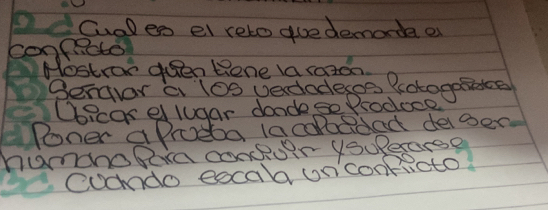 2 ¿Cual es el reto que demanda el
conflicto?
A) Mostrar quien tiene la razón.
B) Señalar a los verdaderos Protagonistas
C) Ubicar el lugar donde se Produce
D) Poner a Prueba la capacidad del ser
humano Para convivir y superarse
¿Cuando escala un conflicto?